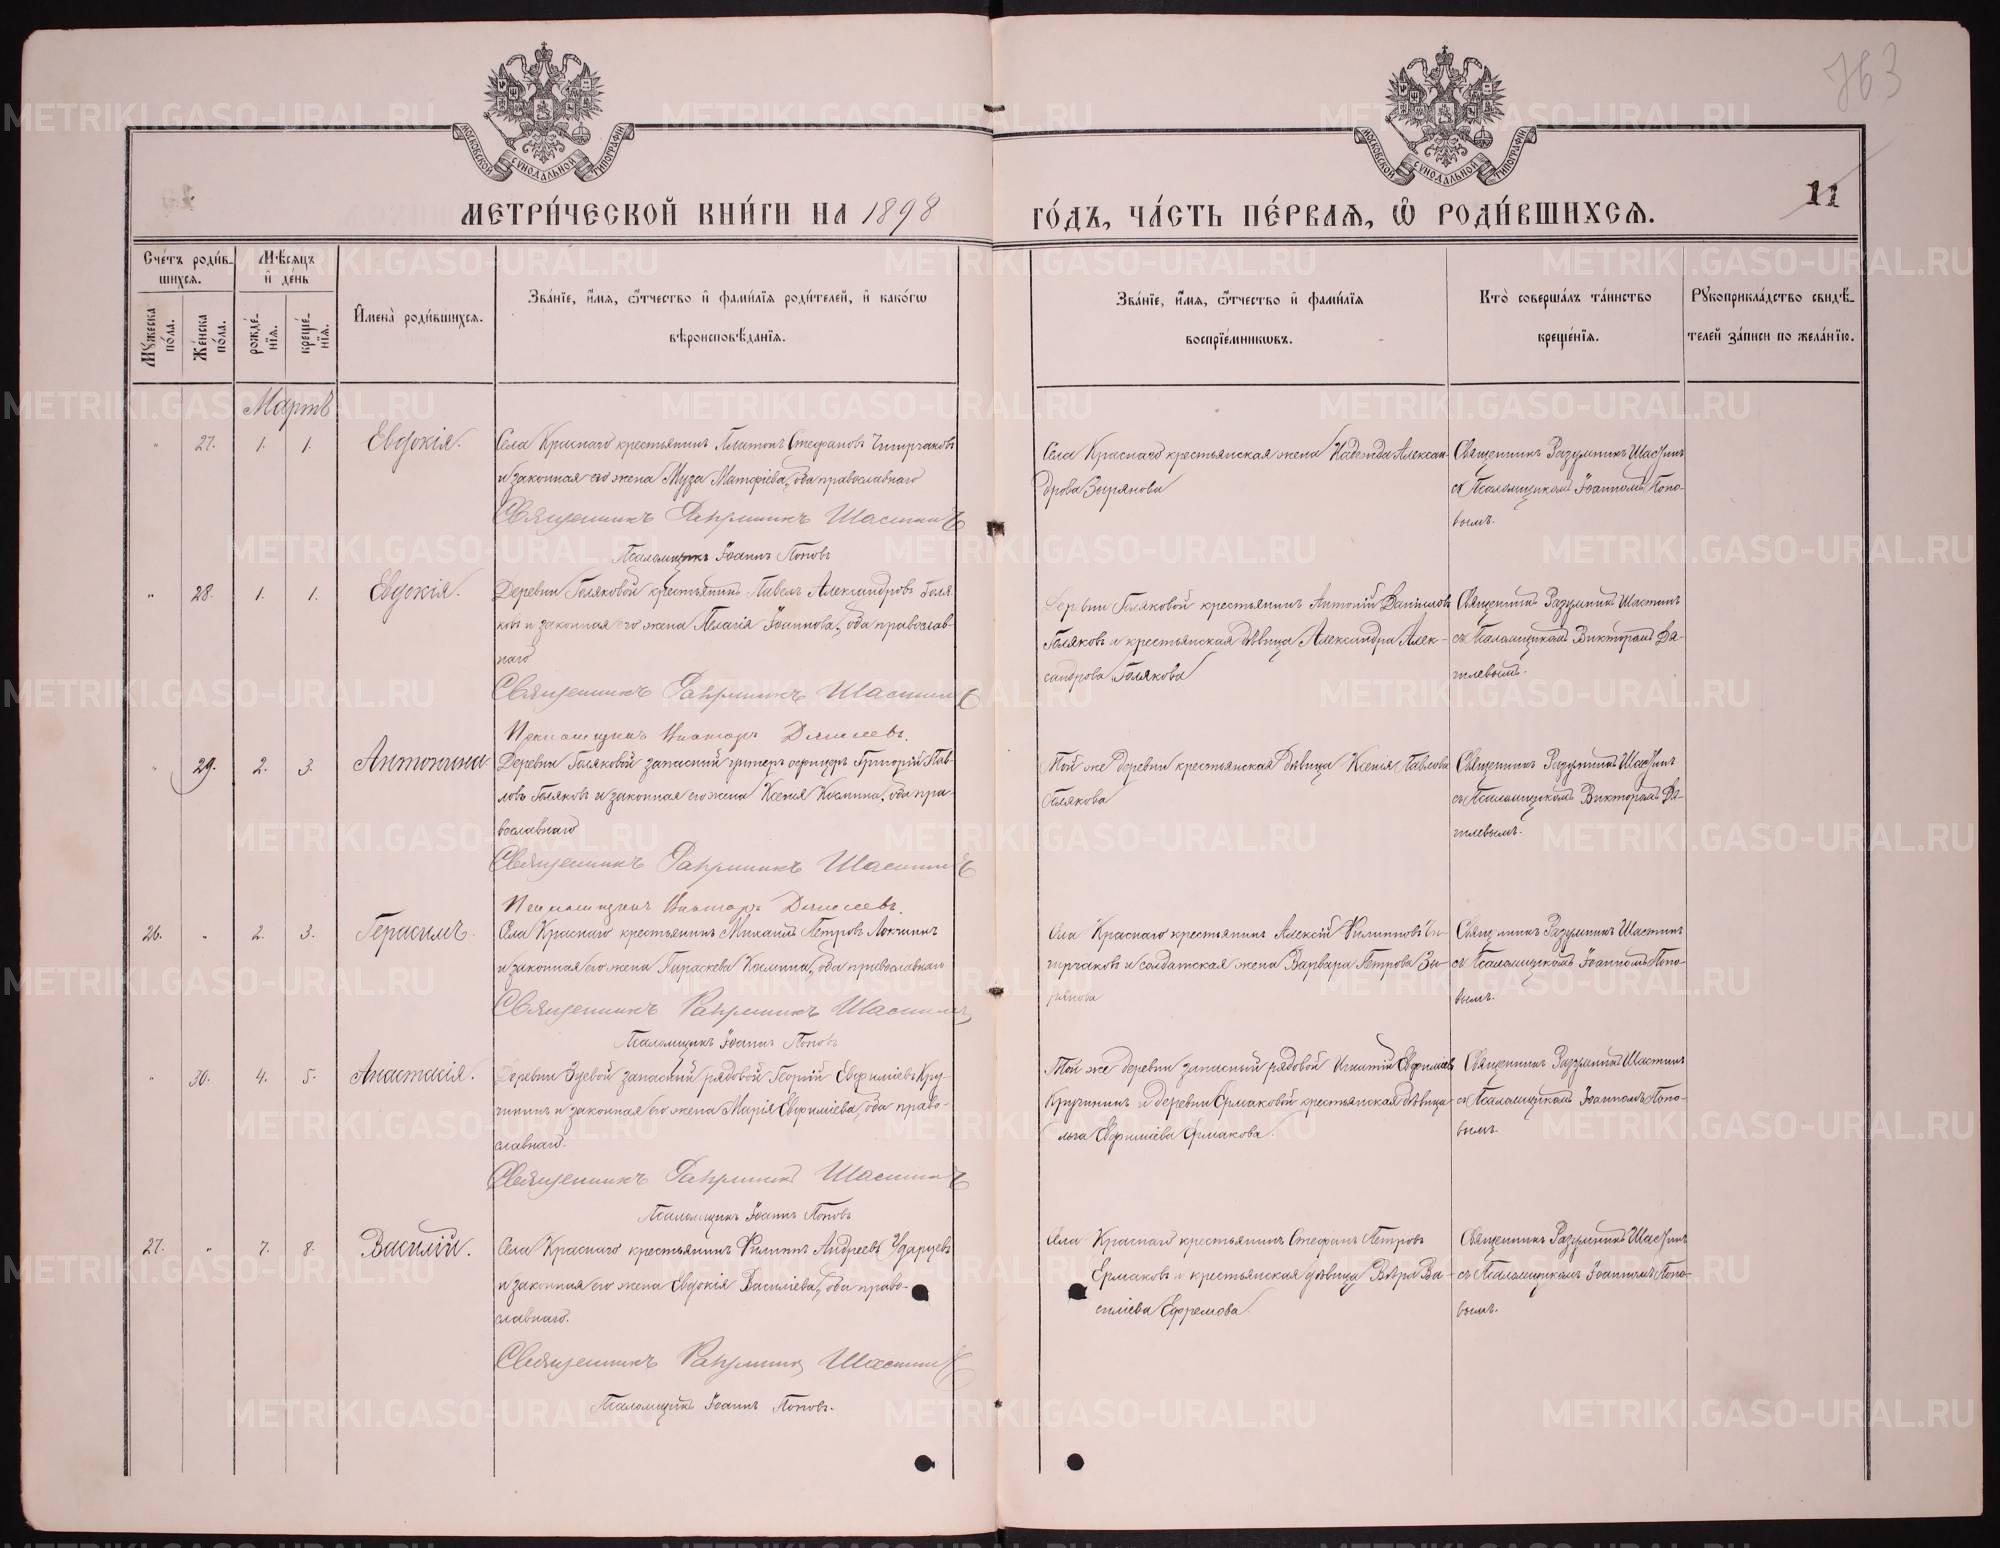 763
11
МОСКОВСКОЙ СУНОДАЛЬНОЙ ТИПОГРАФІИ
МОСКОВСКОЙ СУНОДАЛЬНОЙ ТИПОГРАФІИ
МЕТРИ́ЧЕСКОЙ КНИ́ГИ НА 1898 ГО́ДЪ, ЧА́СТЬ ПЕ́РВАѦ, Ѽ РОДИ́ВШИХСѦ.
Сче́тъ роди́в-
шихсѧ.
Мꙋ́жеска по́ла.
Же́нска по́ла.
Мѣ́сѧцъ и҆ де́нь
рожде́-
нїѧ.
креще́-
нїѧ.
И҆мена̀ роди́вшихсѧ.
Зва́нїе, и҆́мѧ, ѻ҆́тчество и҆ фами́лїѧ роди́телей, и҆ како́гѡ
вѣроисповѣ́данїѧ.
Зва́нїе, и҆́мѧ, ѻ҆́тчество и҆ фами́лїѧ
воспрїе́мникѡвъ.
Кто̀ соверша́лъ та́инство
креще́нїѧ.
Рꙋкоприкла́дство свидѣ́-
телей за́писи по жела́нїю.
Мартъ
" 27. 1. 1. Евдокія.
Села Краснаго крестьянинъ Платонъ Стефановъ Чигрчаковъ
и законная его жена Муза Матфіева, оба православнаго
Священникъ Разумникъ Шастинъ
Псаломщикъ Іоаннъ Поповъ
Села Краснаго крестьянская жена Надежда Алексан-
дрова Зырянова
Священникъ Разумникъ Шастинъ
съ Псаломщикомъ Іоанномъ Попо-
вымъ.
" 28. 1. 1. Евдокія.
Деревни Голяковой крестьянинъ Павелъ Александровъ Голя-
ковъ и законная его жена Пелагія Іоаннова, оба православ-
наго
Священникъ Разумникъ Шастинъ
Псаломщикъ Викторъ
Деревни Голяковой крестьянинъ Антоній Даніиловъ
Голяковъ и крестьянская дѣвица Александра Алек-
сандрова Голякова
Священникъ Разумникъ Шастинъ
съ Псаломщикомъ Викторомъ Дя-
гилевымъ.
" 29. 2. 3. Антонина
Деревни Голяковой запасный унтеръ офицеръ Григорій Пав-
ловъ Голяковъ и законная его жена Ксенія Космина, оба пра-
вославнаго
Священникъ Разумникъ Шастинъ
Псаломщикъ Викторъ
Той же деревни крестьянская дѣвица Ксенія Павлова
Голякова
Священникъ Разумникъ Шастинъ
съ Псаломщикомъ Викторомъ Дя-
гилевымъ.
26. " 2. 3. Герасимъ.
Села Краснаго крестьянинъ Михаилъ Петровъ Локтинъ
и законная его жена Параскева Космина, оба православнаго
Священникъ Разумникъ Шастинъ
Псаломщикъ Іоаннъ Поповъ
Села Краснаго крестьянинъ Алексій Филипповъ Чи-
гирчаковъ и солдатская жена Варвара Петрова Зы-
рянова
Священникъ Разумникъ Шастинъ
съ Псаломщикомъ Іоанномъ Попо-
вымъ.
" 30. 4. 5. Анастасія.
Деревни Зуевой запасный рядовой Георгій Евфиміевъ Кру-
чининъ и законная его жена Марія Евфиміева, оба право-
славнаго.
Священникъ Разумникъ Шастинъ
Псаломщикъ Іоаннъ Поповъ
Той же деревни запасный рядовой Игнатій Евфиміевъ
Кручининъ и деревни Ермаковой крестьянская дѣвица
Ольга Евфиміева Ермакова.
Священникъ Разумникъ Шастинъ
съ Псаломщикомъ Іоанномъ Попо-
вымъ.
27. " 7. 8. Василій.
Села Краснаго крестьянинъ Филиппъ Андреевъ Ударцевъ
и законная его жена Евдокія Василіева, оба право-
славнаго.
Священникъ Разумникъ Шастинъ
Псаломщикъ Іоаннъ Поповъ.
Села Краснаго крестьянинъ Стефанъ Петровъ
Ермаковъ и крестьянская дѣвица Вѣра Ва-
силіева Ефремова.
Священникъ Разумникъ Шастинъ
съ Псаломщикомъ Іоанномъ Попо-
вымъ.
METRIKI.GASO-URAL.RU